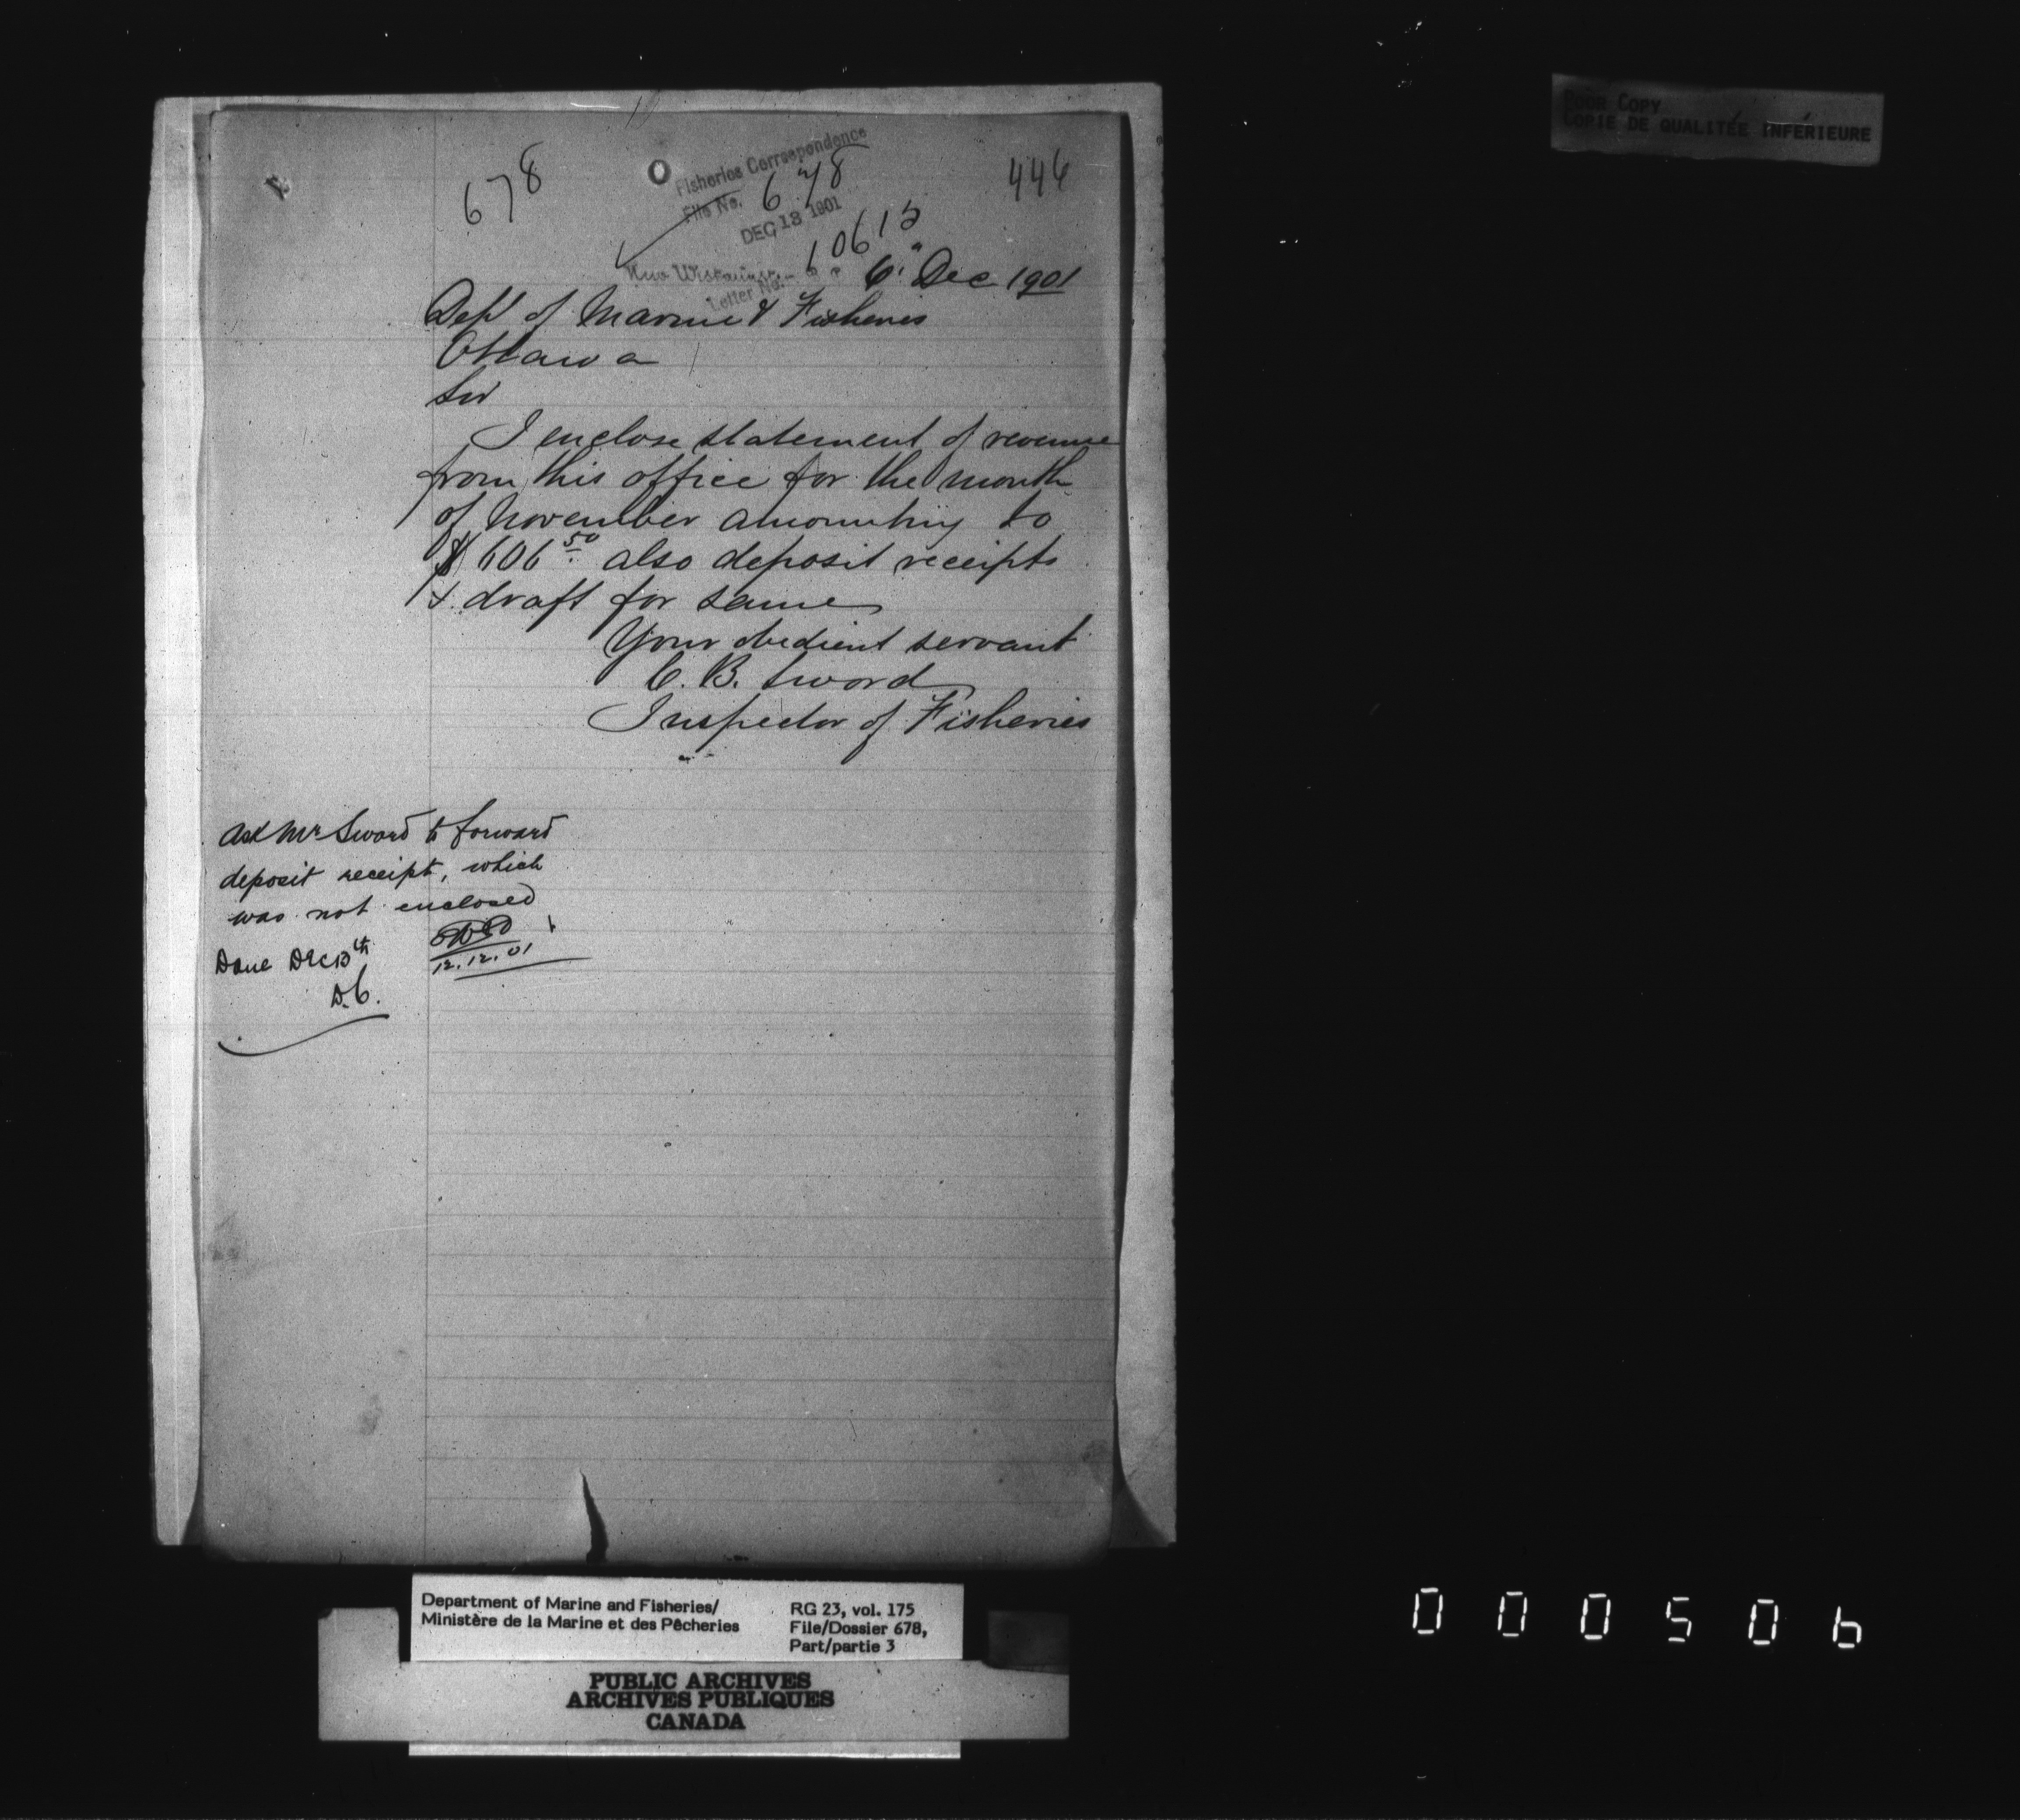 POOR COPY
COPIE DE QUALITÉE INFÉRIEURE
678
Fisheries Correspondence
File No. 678
DEC 13 1901
10613
Letter No.
446
New Westminster B C 6" Dec 1901
Dept of Marine & Fisheries
Ottawa
Sir
I enclose statement of revenue
from this office for the month
of November amounting to
$606 50 also deposit receipts
& draft for same
Your obedient servant
C. B. Sword
Inspector of Fisheries
Ask Mr Sword to forward
deposit receipt, which
was not enclosed
12.12.01
Done Dec 13th
D.C.
Department of Marine and Fisheries/
Ministère de la Marine et des Pêcheries
RG 23, vol. 175
File/Dossier 678,
Part/partie 3
PUBLIC ARCHIVES
ARCHIVES PUBLIQUES
CANADA
000506